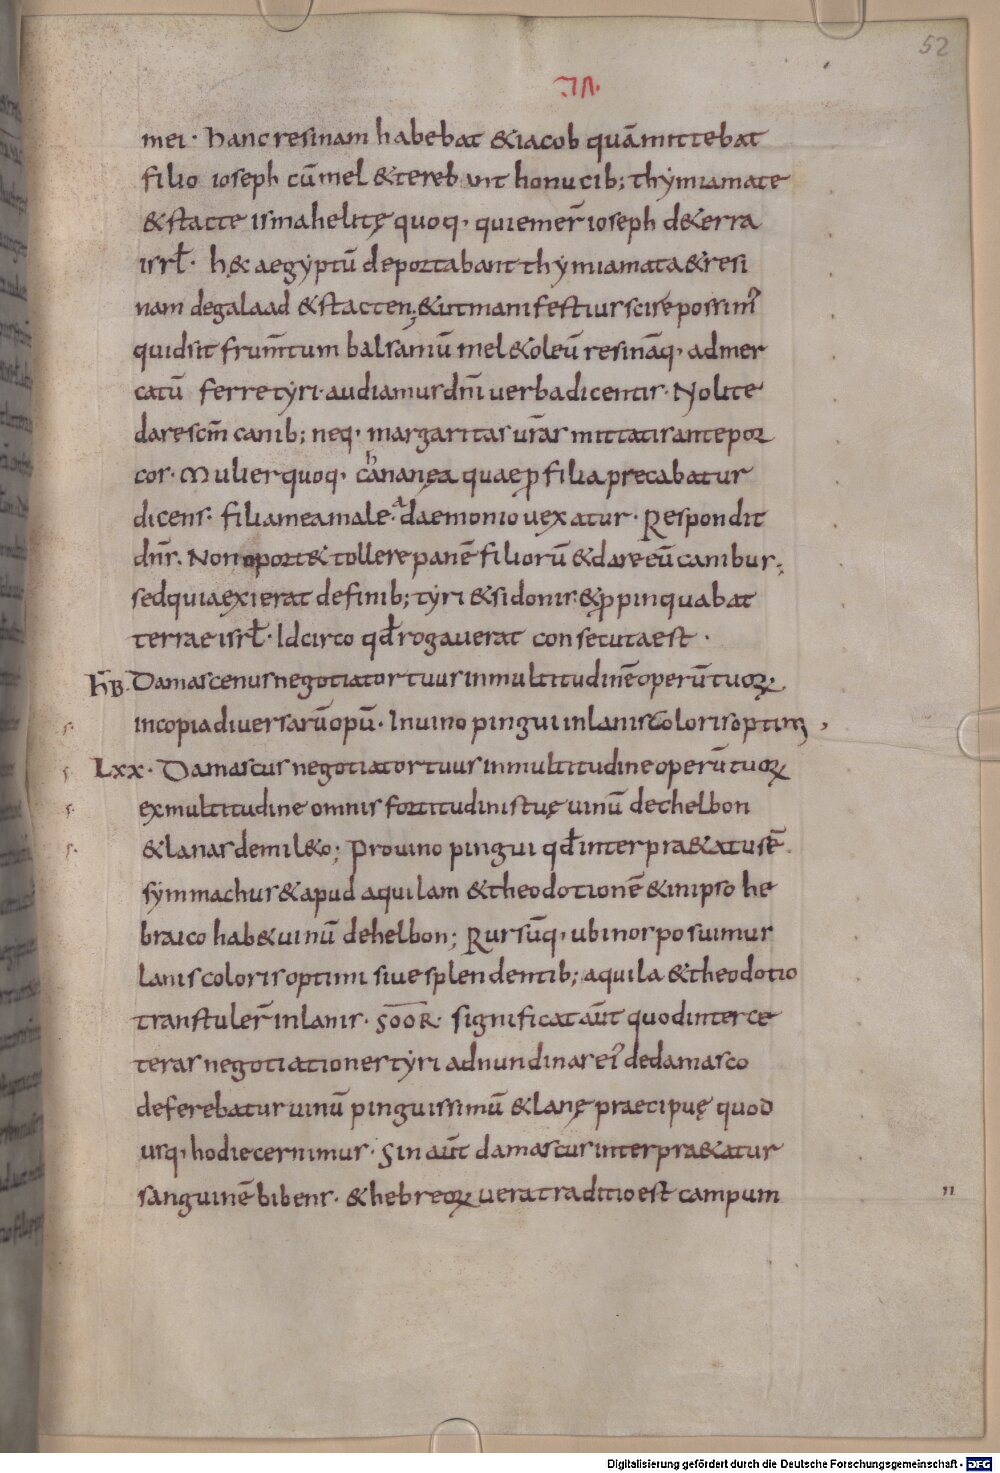 52
mei · Hanc resinam habebat & iacob quā mittebat
filio ioseph cū mel & terebint honucib; thymiamate
& stacte ismahelitę quoq, qui emer̄ ioseph de terra
isrł · hęc aegyptū deportabant thymiamata & resi
nam de galaad & stacten; & ut manifestius scire possim̄
quid sit frum̄tum balsamū mel & oleū resināq, ad mer
catū ferre tyri · audiamus dn̄i verba dicentis · Nolite
dare sc̄m canib; neq, margaritas ur̄as mittatis ante por
cos · Mulier quoq, chananęa quae ꝓ filia precabatur
dicens · filia mea male a daemonio uexatur · Respondit
dn̄s · Non oport& tollere panē filiorū & dare eū canibus;
sed quia exierat de finib; tyri & sidonis & ꝓpinquabat
terrae isrł · Idcirco qđ rogauerat consecuta est ·
H̄B · Damascenus negotiator tuus in multitudinē operū tuoꝝ ·
in copia diuersarū opū · In uino pingui in lanis coloris optimi
Lxx · Damascus negotiator tuus in multitudine operū tuoꝝ
ex multitudine omnis fortitudinis tuę uinū de chelbon
& lanas de mil&o; Pro uino pingui qđ interpra&atus ē
symmachus & apud aquilam & theodotionē & in ipso he
braico hab& uinū de helbon; Rursūq, ubi nos posuimus
lanis coloris optimi siue splendentib; aquila & theodotio
transtuler̄ in lanis · SOOR · significat aūt quod inter ce
teras negotiationes tyri ad nundinas ei' de damasco
deferebatur uinū pinguissimū & lanę praecipuę quod
usq, hodie cernimus · Sin aūt damascus interpra&atur
sanguinē bibens · & hebreoꝝ uera traditio est campum
Digitalisierung gefördert durch die Deutsche Forschungsgemeinschaft - DFG